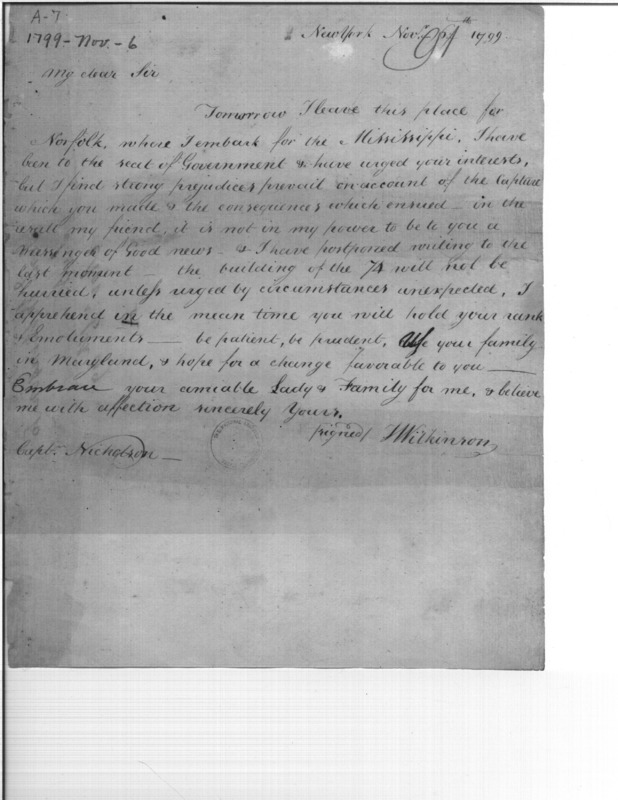 A-7
1799-Nov.-6
New York Nov.r 6th 1799
My dear Sir
Tomorrow I leave this place for
Norfolk, whence I embark for the Mississippi, I have
been to the seat of Government & have urged your interests,
but I find strong prejudices prevail on account of the Capture
which you made & the consequences which ensued — in the
result my friend, it is not in my power to be to you a
Messenger of Good news — & I have postponed writing to the
last moment — the building of the 74 will not be
hurried, unless urged by circumstances unexpected, I
apprehend in the mean time you will hold your rank
& Emoluments — be patient, be prudent, your family
in Maryland, & hope for a change favorable to you —
Embrace your amiable Lady & Family for me, & believe
me with affection sincerely Yours,
(signed) JWilkinson
Capt. Nicholson —